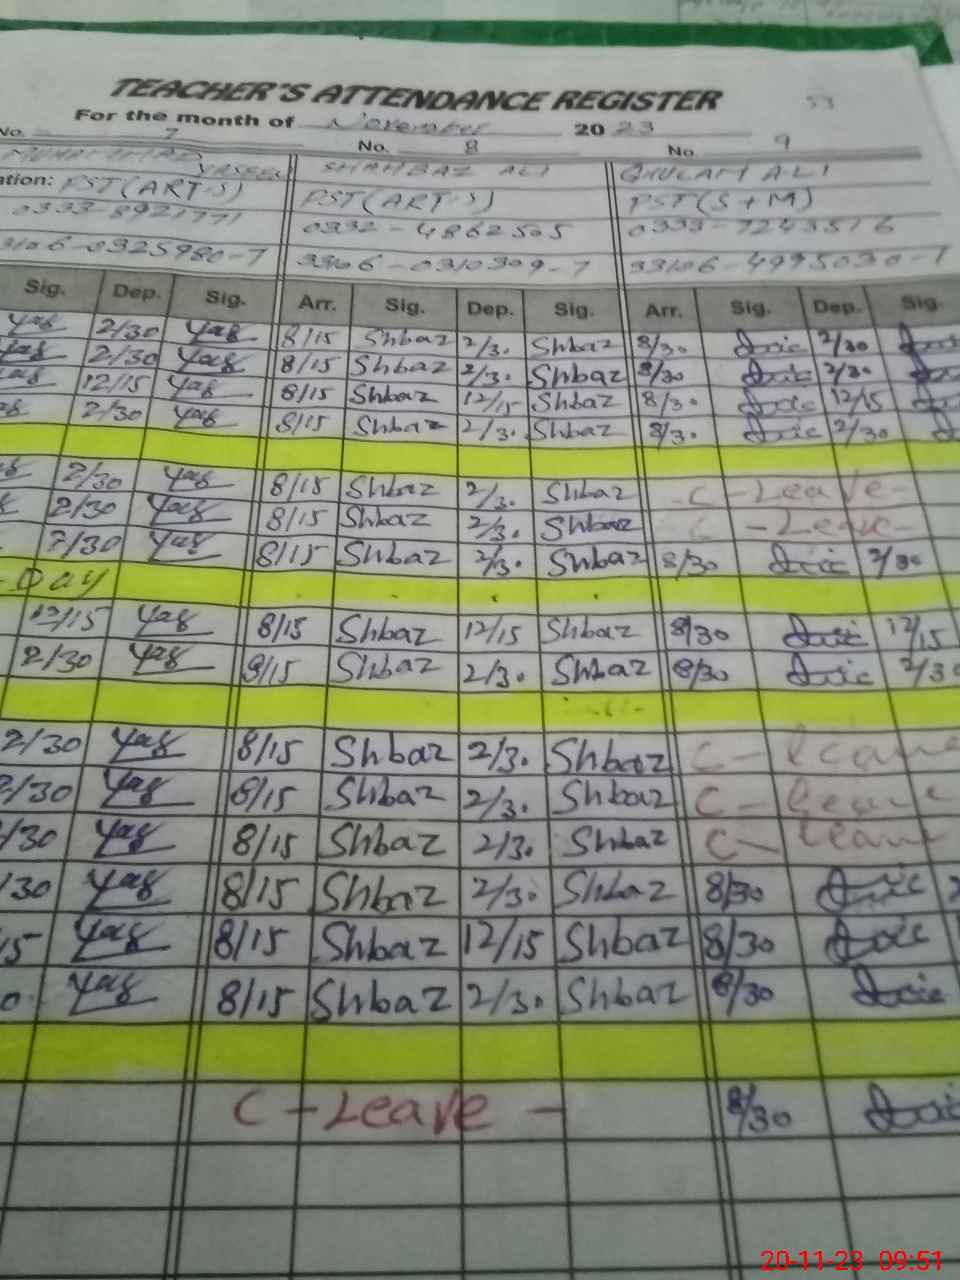 TEACHER'S ATTENDANCE REGISTER 53
For the month of November 2023
No. 7 No. 8 No. 9
MUHAMMAD YASEEN SHAHBAZ ALI GHULAM ALI
ation: PST(ART.S) PST(ART.S) PST(S+M)
0333-8921771 0332-4862505 0333-7243516
33106-0325980-7 33106-0310309-7 33106-4995030-1
Sig. Dep. Sig. Arr. Sig. Dep. Sig. Arr. Sig. Dep. Sig.
Yas 2/30 Yas 8/15 Shbaz 2/3. Shbaz 8/30 2/30
Yas 2/30 Yas 8/15 Shbaz 2/3. Shbaz 8/30 2/30
Yas 12/15 Yas 8/15 Shbaz 12/15 Shbaz 8/3. 12/15
2/30 Yas 8/15 Shbaz 2/3. Shbaz 8/3. 2/30
2/30 Yas 8/15 Shbaz 2/3. Shbaz C-Leave-
2/30 Yas 8/15 Shbaz 2/3. Shbaz C-Leave-
2/30 Yas 8/15 Shbaz 2/3. Shbaz 8/30 2/30
-Day
12/15 Yas 8/15 Shbaz 12/15 Shbaz 8/30 12/15
2/30 Yas 8/15 Shbaz 2/3. Shbaz 8/30 2/30
2/30 Yas 8/15 Shbaz 2/3. Shbaz C-leave
2/30 Yas 8/15 Shbaz 2/3. Shbaz C-leave
/30 Yas 8/15 Shbaz 2/3. Shbaz C-leave
/30 Yas 8/15 Shbaz 2/3. Shbaz 8/30 2
15 Yas 8/15 Shbaz 12/15 Shbaz 8/30
0. Yas 8/15 Shbaz 2/3. Shbaz 8/30
C-Leave- 8/30
20-11-23 09:51